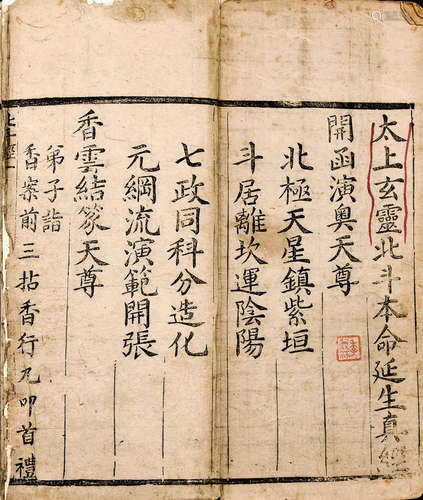 太上玄靈北斗本命延生真經
開函演奧天尊
北極天星鎮紫垣
斗居離坎運陰陽
七政同科分造化
元綱流演範開張
香雲結篆天尊
弟子詣
香案前三拈香行九叩首禮